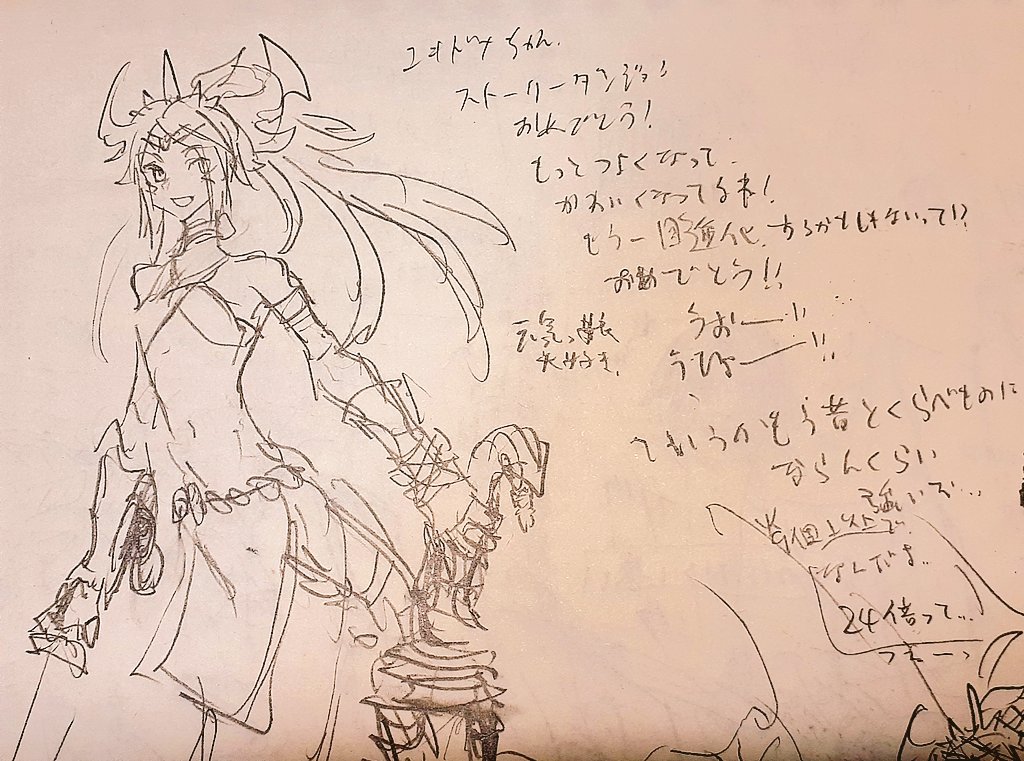 ユキトツメちゃん.
ストーリータンジョン!
おめでとう!
もっとつよくなって.
かわいくなってるネ!
もう一回強化、するかもしれないって!?
おめでとう!!
うおー!!
元気っ娘
大好き.
うひょー!!
ていうかもう昔とくらべものに
ならんくらい
強いぞ…
※個人比で
なんだよ..
24倍って…
つえーっ